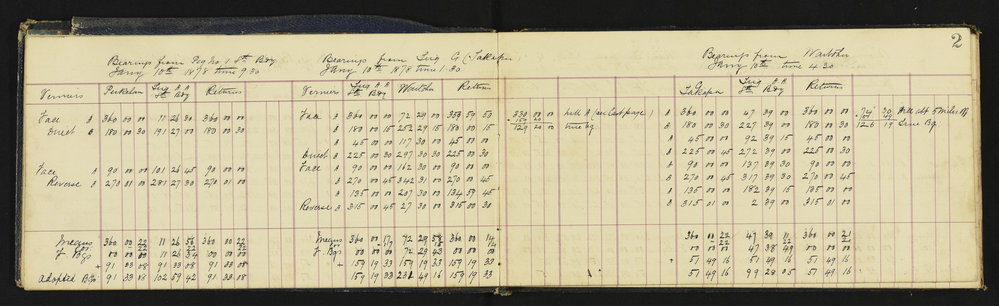 2
Bearings from Peg No 1 Sth Bdy
Jany 10th 1878 time 9.30
Bearings from Trig G (Takapu)
Jany 10th 1878 time 1.30
Bearings from Waitohu
Jany 10th time 4.30
Verniers Trig A A Sth Bdy Returns
Verniers Trig A A Sth Bdy Waitohu Returns
Takapu Trig A A Sth Bdy Returns
Face A 360 00 00 11 26 30 360 00 00
Direct B 180 00 30 191 27 00 180 00 30
Face A 90 00 00 101 26 45 90 00 00
Reverse B 270 01 00 281 27 30 270 01 00
Means 360 00 22 11 26 56 360 00 22
of Bgs 00 00 00 11 26 34 00 00 00
+ 91 33 08 91 33 08 91 33 08
Adopted Bgs 91 33 08 102 59 42 91 33 08
Face A 360 00 00 72 29 00 359 59 53
B 180 00 15 252 29 15 180 00 15
A 45 00 00 117 30 00 45 00 00
Direct B 225 00 30 297 30 30 225 00 30
Face A 90 00 00 162 30 00 90 00 00
B 270 00 45 342 31 00 270 00 45
A 135 00 00 207 30 00 134 59 45
Reverse B 315 00 45 27 30 00 315 00 30
Means 360 00 17 72 29 58 360 00 14
of Bgs 00 00 00 72 29 43 00 00 00
+ 159 19 33 159 19 33 159 19 30
159 19 33 231 49 16 159 19 33
330 00 00 hill A (see last page)
129 20 00 true bg
A 360 00 00 47 39 00 360 00 00
B 180 00 30 227 39 00 180 00 30
A 45 00 00 92 39 15 45 00 00
B 225 00 45 272 39 00 225 00 30
A 90 00 00 137 39 30 90 00 00
B 270 00 45 317 39 30 270 00 45
A 135 00 00 182 39 15 135 00 00
B 315 01 00 2 39 00 315 01 00
360 00 22 47 39 11 360 00 21
00 00 00 47 38 49 00 00 00
+ 51 49 16 51 49 16 51 49 16
51 49 16 99 28 05 51 49 16
Hill abt 5 miles off
126 19 True Bg